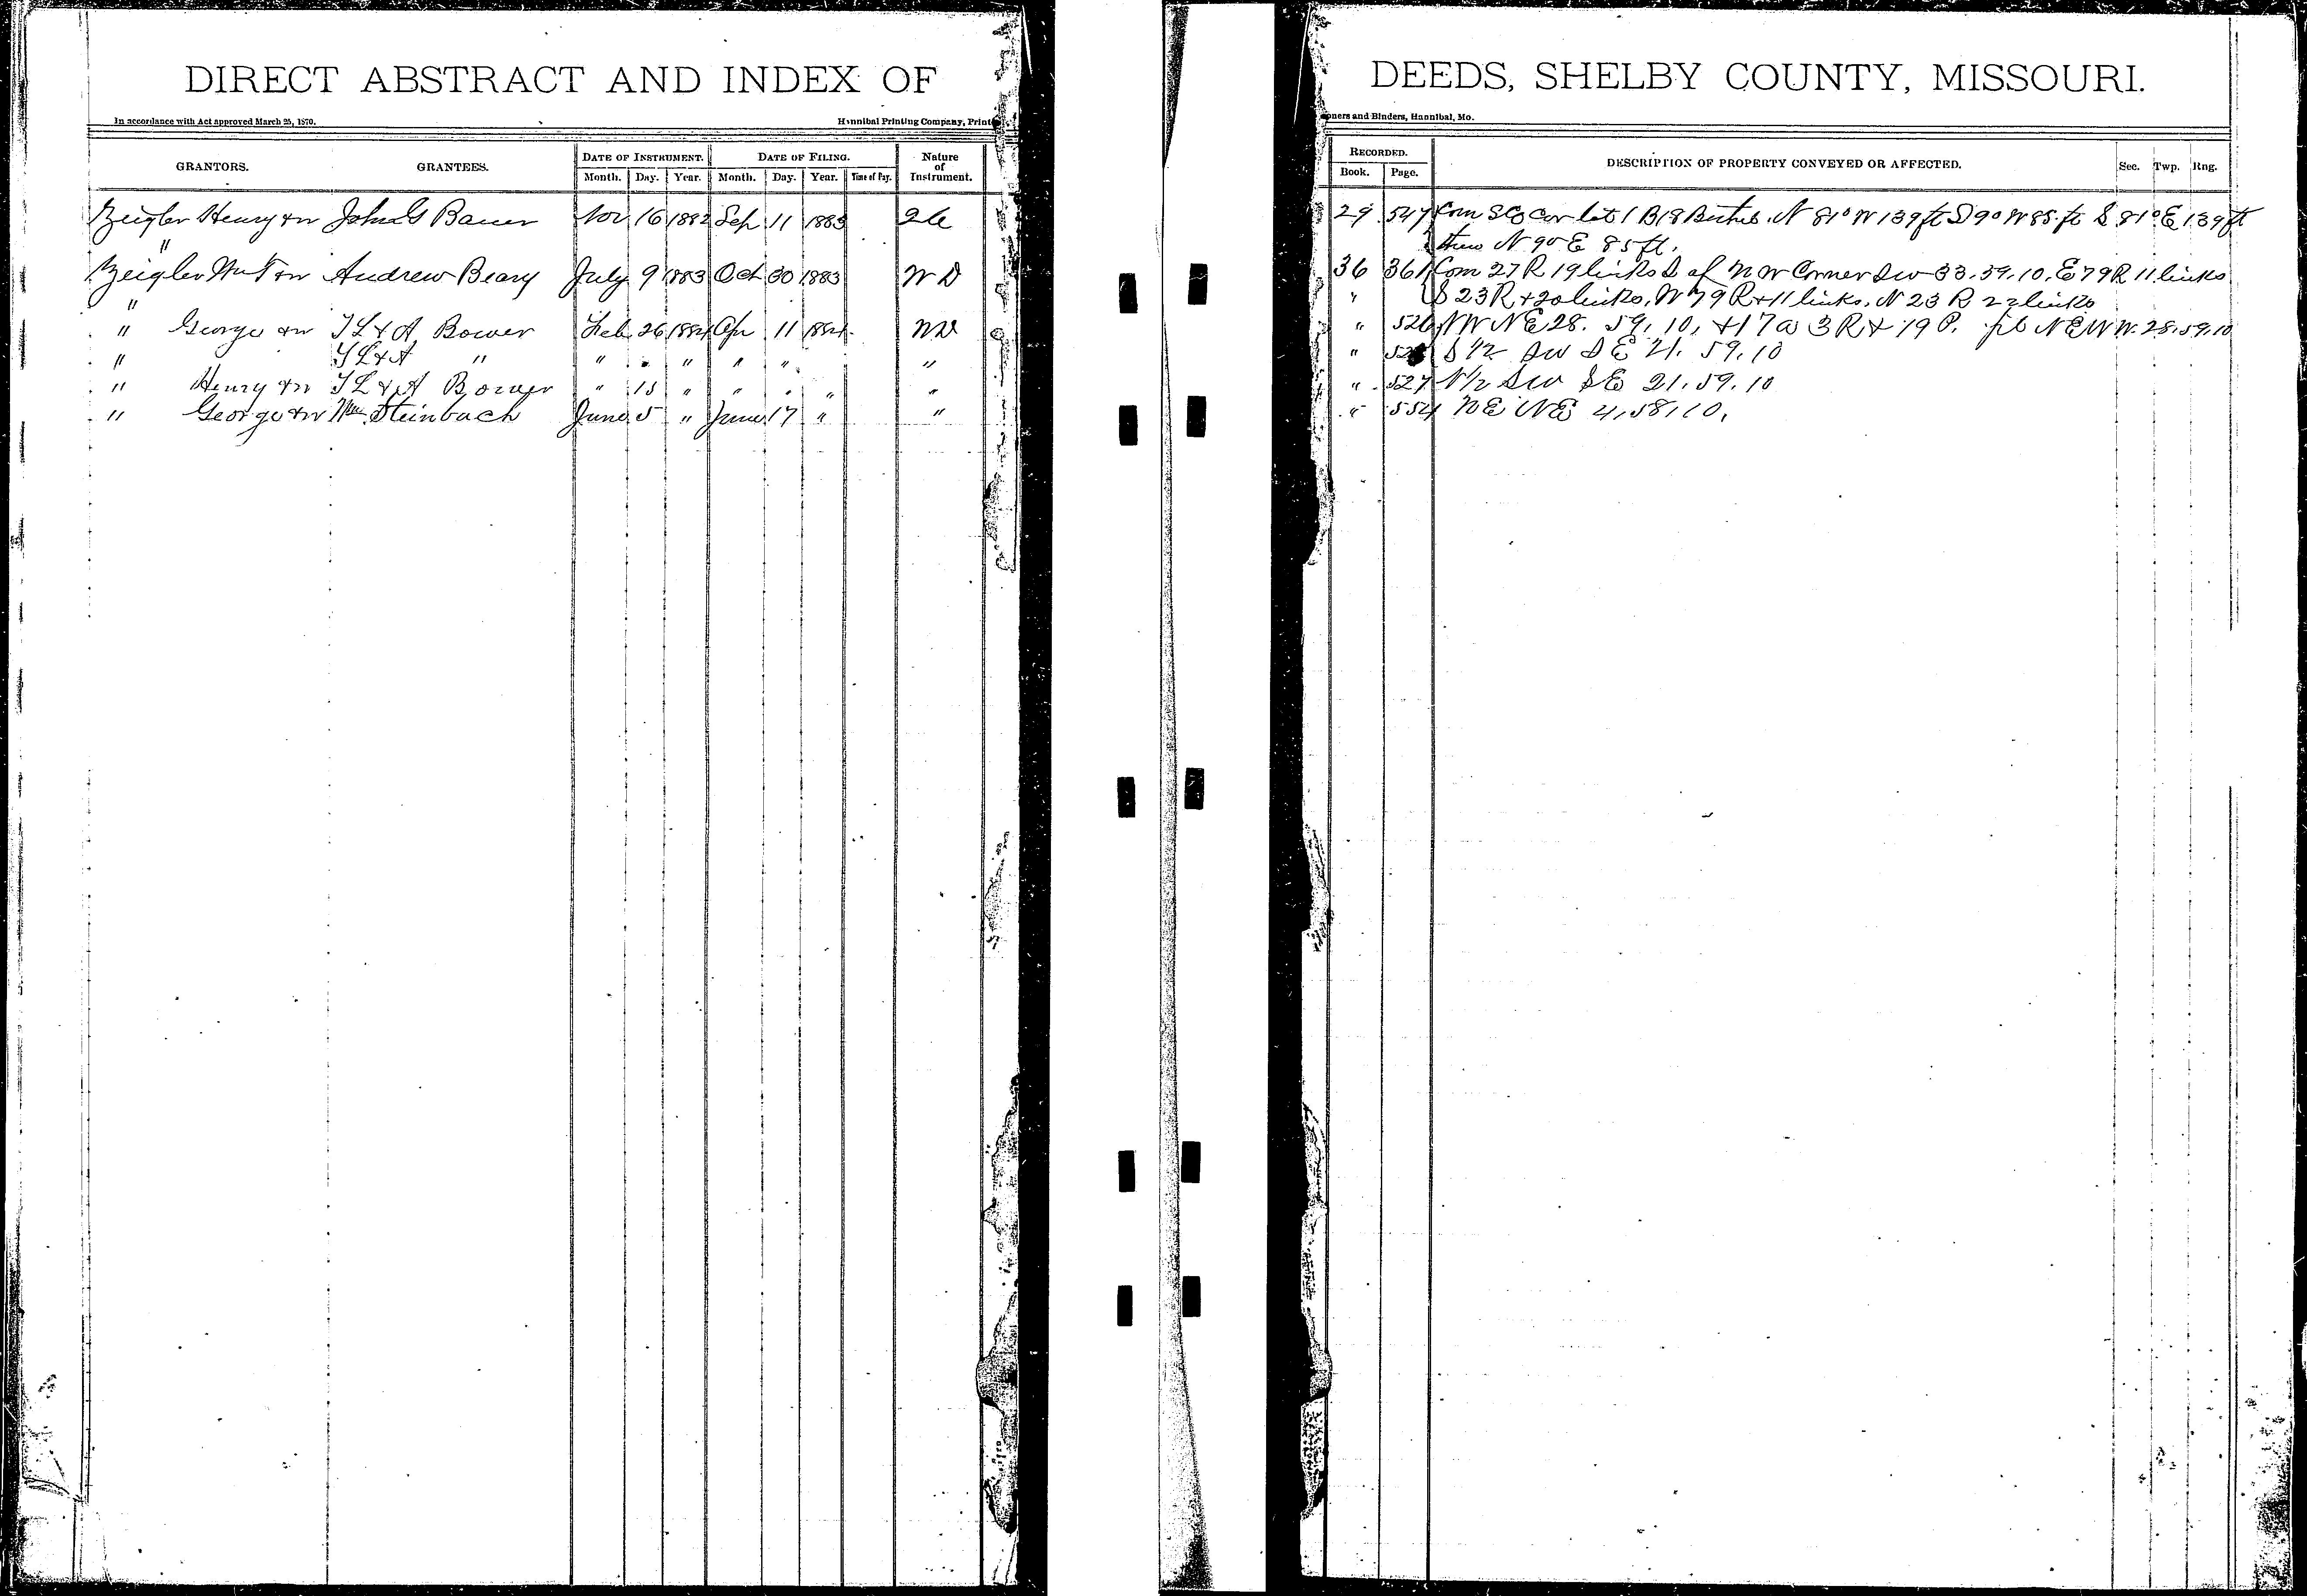 DIRECT ABSTRACT AND INDEX OF DEEDS, SHELBY COUNTY, MISSOURI.
In accordance with Act approved March 25, 1870. Hannibal Printing Company, Print oners and Binders, Hannibal, Mo.
GRANTORS. GRANTEES. DATE OF INSTRUMENT. DATE OF FILING. Nature of Instrument. RECORDED. DESCRIPTION OF PROPERTY CONVEYED OR AFFECTED. Sec. Twp. Rng.
Month. Day. Year. Month. Day. Year. Time of Day. Book. Page.
Zeigler Henry & w John G Bauer Nov 16 1882 Sep 11 1883 29 547 Com Cor lot 1 B 18 N 81° W 139 ft S 9° W 85 ft S 81° E 139 ft
" N 9° E 85 ft.
Zeigler & w Andrew Beary July 9 1883 Oct 30 1883 W D 36 361 Com 27 R 19 links S of N W Corner S W 33.59.10. E 79 R 11 links
" " S 23 R + 20 links, W 79 R + 11 links, N 23 R 22 links
" George & w & A Bower Feb 26 1884 Apr 11 1884 W D " 526 N W N E 28. 59. 10, + 17 a 3 R + 19 P. pt N E N W. 28.59.10
" & A " " " " " " " " " S 1/2 S W S E 21. 59. 10
" Henry & w & A Bower " 15 " " " " " " 527 N 1/2 S W S E 21. 59. 10
" George & w Wm Steinbach June 5 " June 17 " " " 554 N E N E 4, 58, 10,